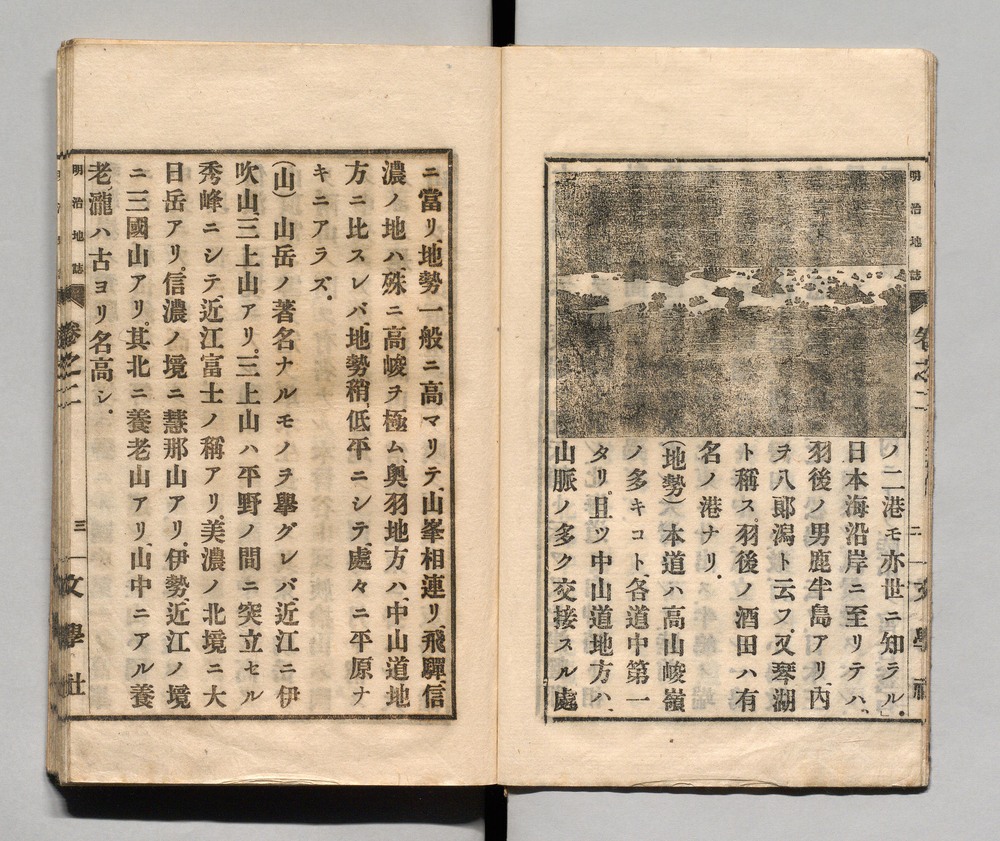 明治地誌
卷之二
二
文學社
ノ二港モ亦世ニ知ラル。
日本海沿岸ニ至リテハ、
羽後ノ男鹿半島アリ、內
ヲ八郞潟ト云フ、又琴湖
ト稱ス、羽後ノ酒田ハ有
名ノ港ナリ。
(地勢) 本道ハ高山峻嶺
ノ多キコト、各道中第一
タリ、且ツ中山道地方ハ、
山脈ノ多ク交接スル處
ニ當リ、地勢一般ニ高マリテ、山峯相連リ、飛驒、信
濃ノ地ハ、殊ニ高峻ヲ極ム、奧羽地方ハ、中山道地
方ニ比スレバ、地勢稍低平ニシテ、處々ニ平原ナ
キニアラズ。
(山) 山岳ノ著名ナルモノヲ擧グレバ、近江ニ伊
吹山、三上山アリ。三上山ハ平野ノ間ニ突立セル
秀峰ニシテ近江富士ノ稱アリ。美濃ノ北境ニ大
日岳アリ。信濃ノ境ニ惠那山アリ。伊勢、近江ノ境
ニ三國山アリ。其北ニ養老山アリ、山中ニアル養
老瀧ハ古ヨリ名高シ。
明治地誌
卷之二
三
文學社